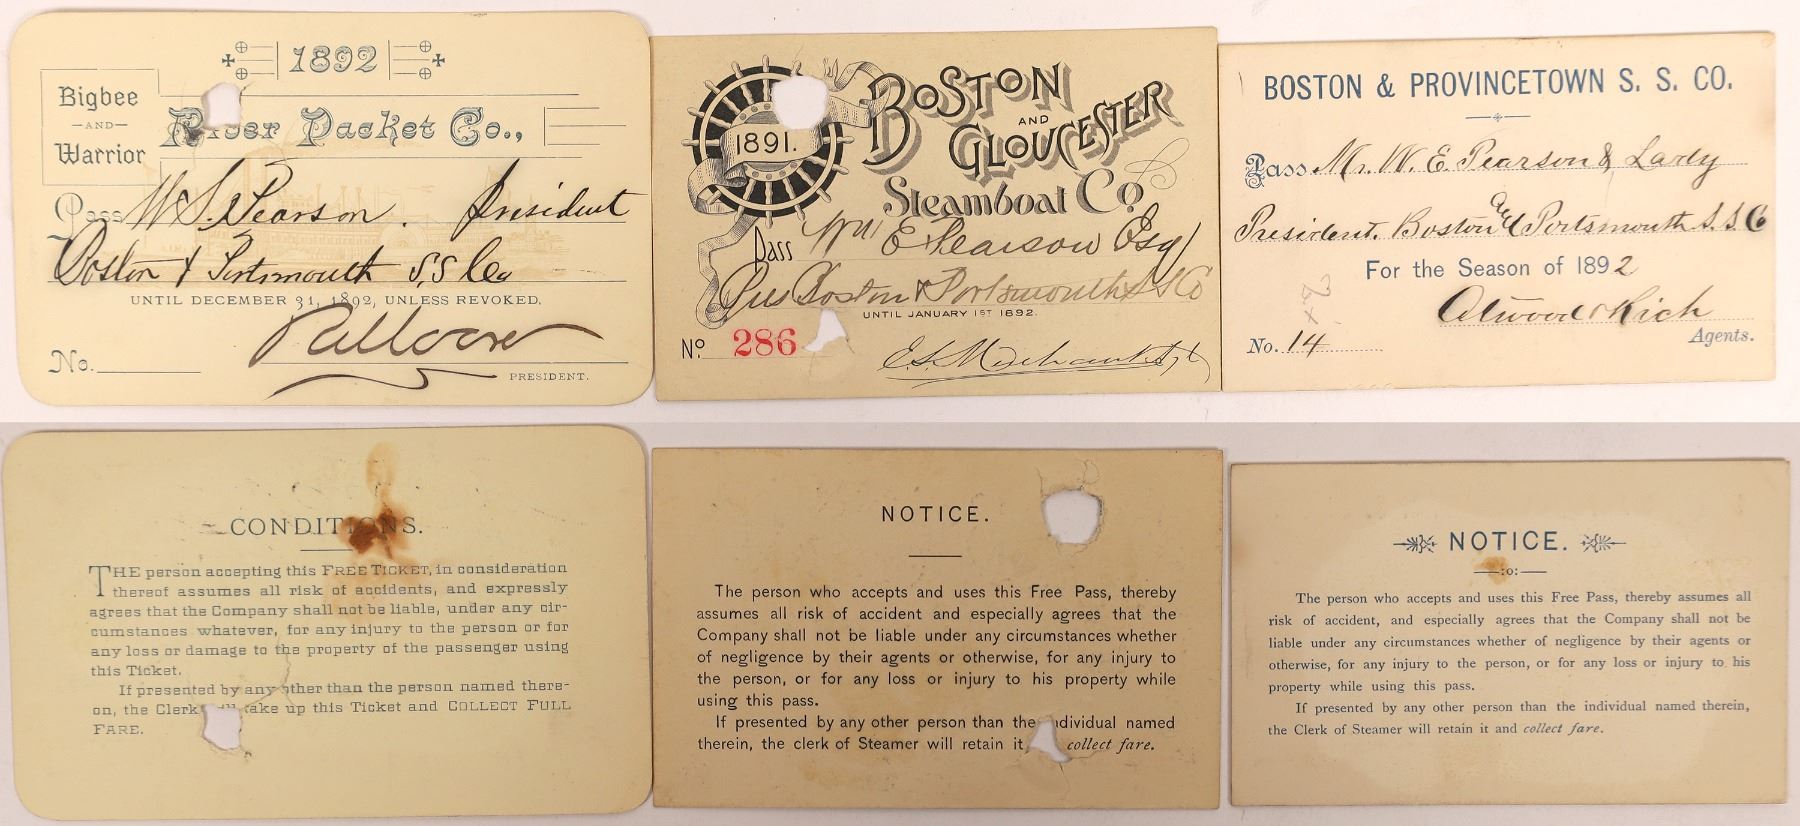 1892
Bigbee
AND
Warrior
River Packet Co.,
Pass W. S. Pearson. President
Boston & Portsmouth S, S Co
UNTIL DECEMBER 31, 1892, UNLESS REVOKED.
No.
PRESIDENT.
1891.
BOSTON
AND
GLOUCESTER
Steamboat Co.
Pass Wm E Pearson Esq
Pres Boston & Portsmouth S S Co
UNTIL JANUARY 1ST 1892.
No 286
E. S. Merchant Agt
BOSTON & PROVINCETOWN S. S. CO.
Pass Mr. W. E. Pearson & Lady
President. Boston and Portsmouth S. S. Co
For the Season of 1892
Atwood & Rich
No. 14
Agents.
CONDITIONS.
THE person accepting this FREE TICKET, in consideration
thereof assumes all risk of accidents, and expressly
agrees that the Company shall not be liable, under any cir-
cumstances whatever, for any injury to the person or for
any loss or damage to the property of the passenger using
this Ticket.
If presented by any other than the person named there-
on, the Clerk will take up this Ticket and COLLECT FULL
FARE.
NOTICE.
The person who accepts and uses this Free Pass, thereby
assumes all risk of accident and especially agrees that the
Company shall not be liable under any circumstances whether
of negligence by their agents or otherwise, for any injury to
the person, or for any loss or injury to his property while
using this pass.
If presented by any other person than the individual named
therein, the clerk of Steamer will retain it collect fare.
NOTICE.
:o:
The person who accepts and uses this Free Pass, thereby assumes all
risk of accident, and especially agrees that the Company shall not be
liable under any circumstances whether of negligence by their agents or
otherwise, for any injury to the person, or for any loss or injury to his
property while using this pass.
If presented by any other person than the individual named therein,
the Clerk of Steamer will retain it and collect fare.